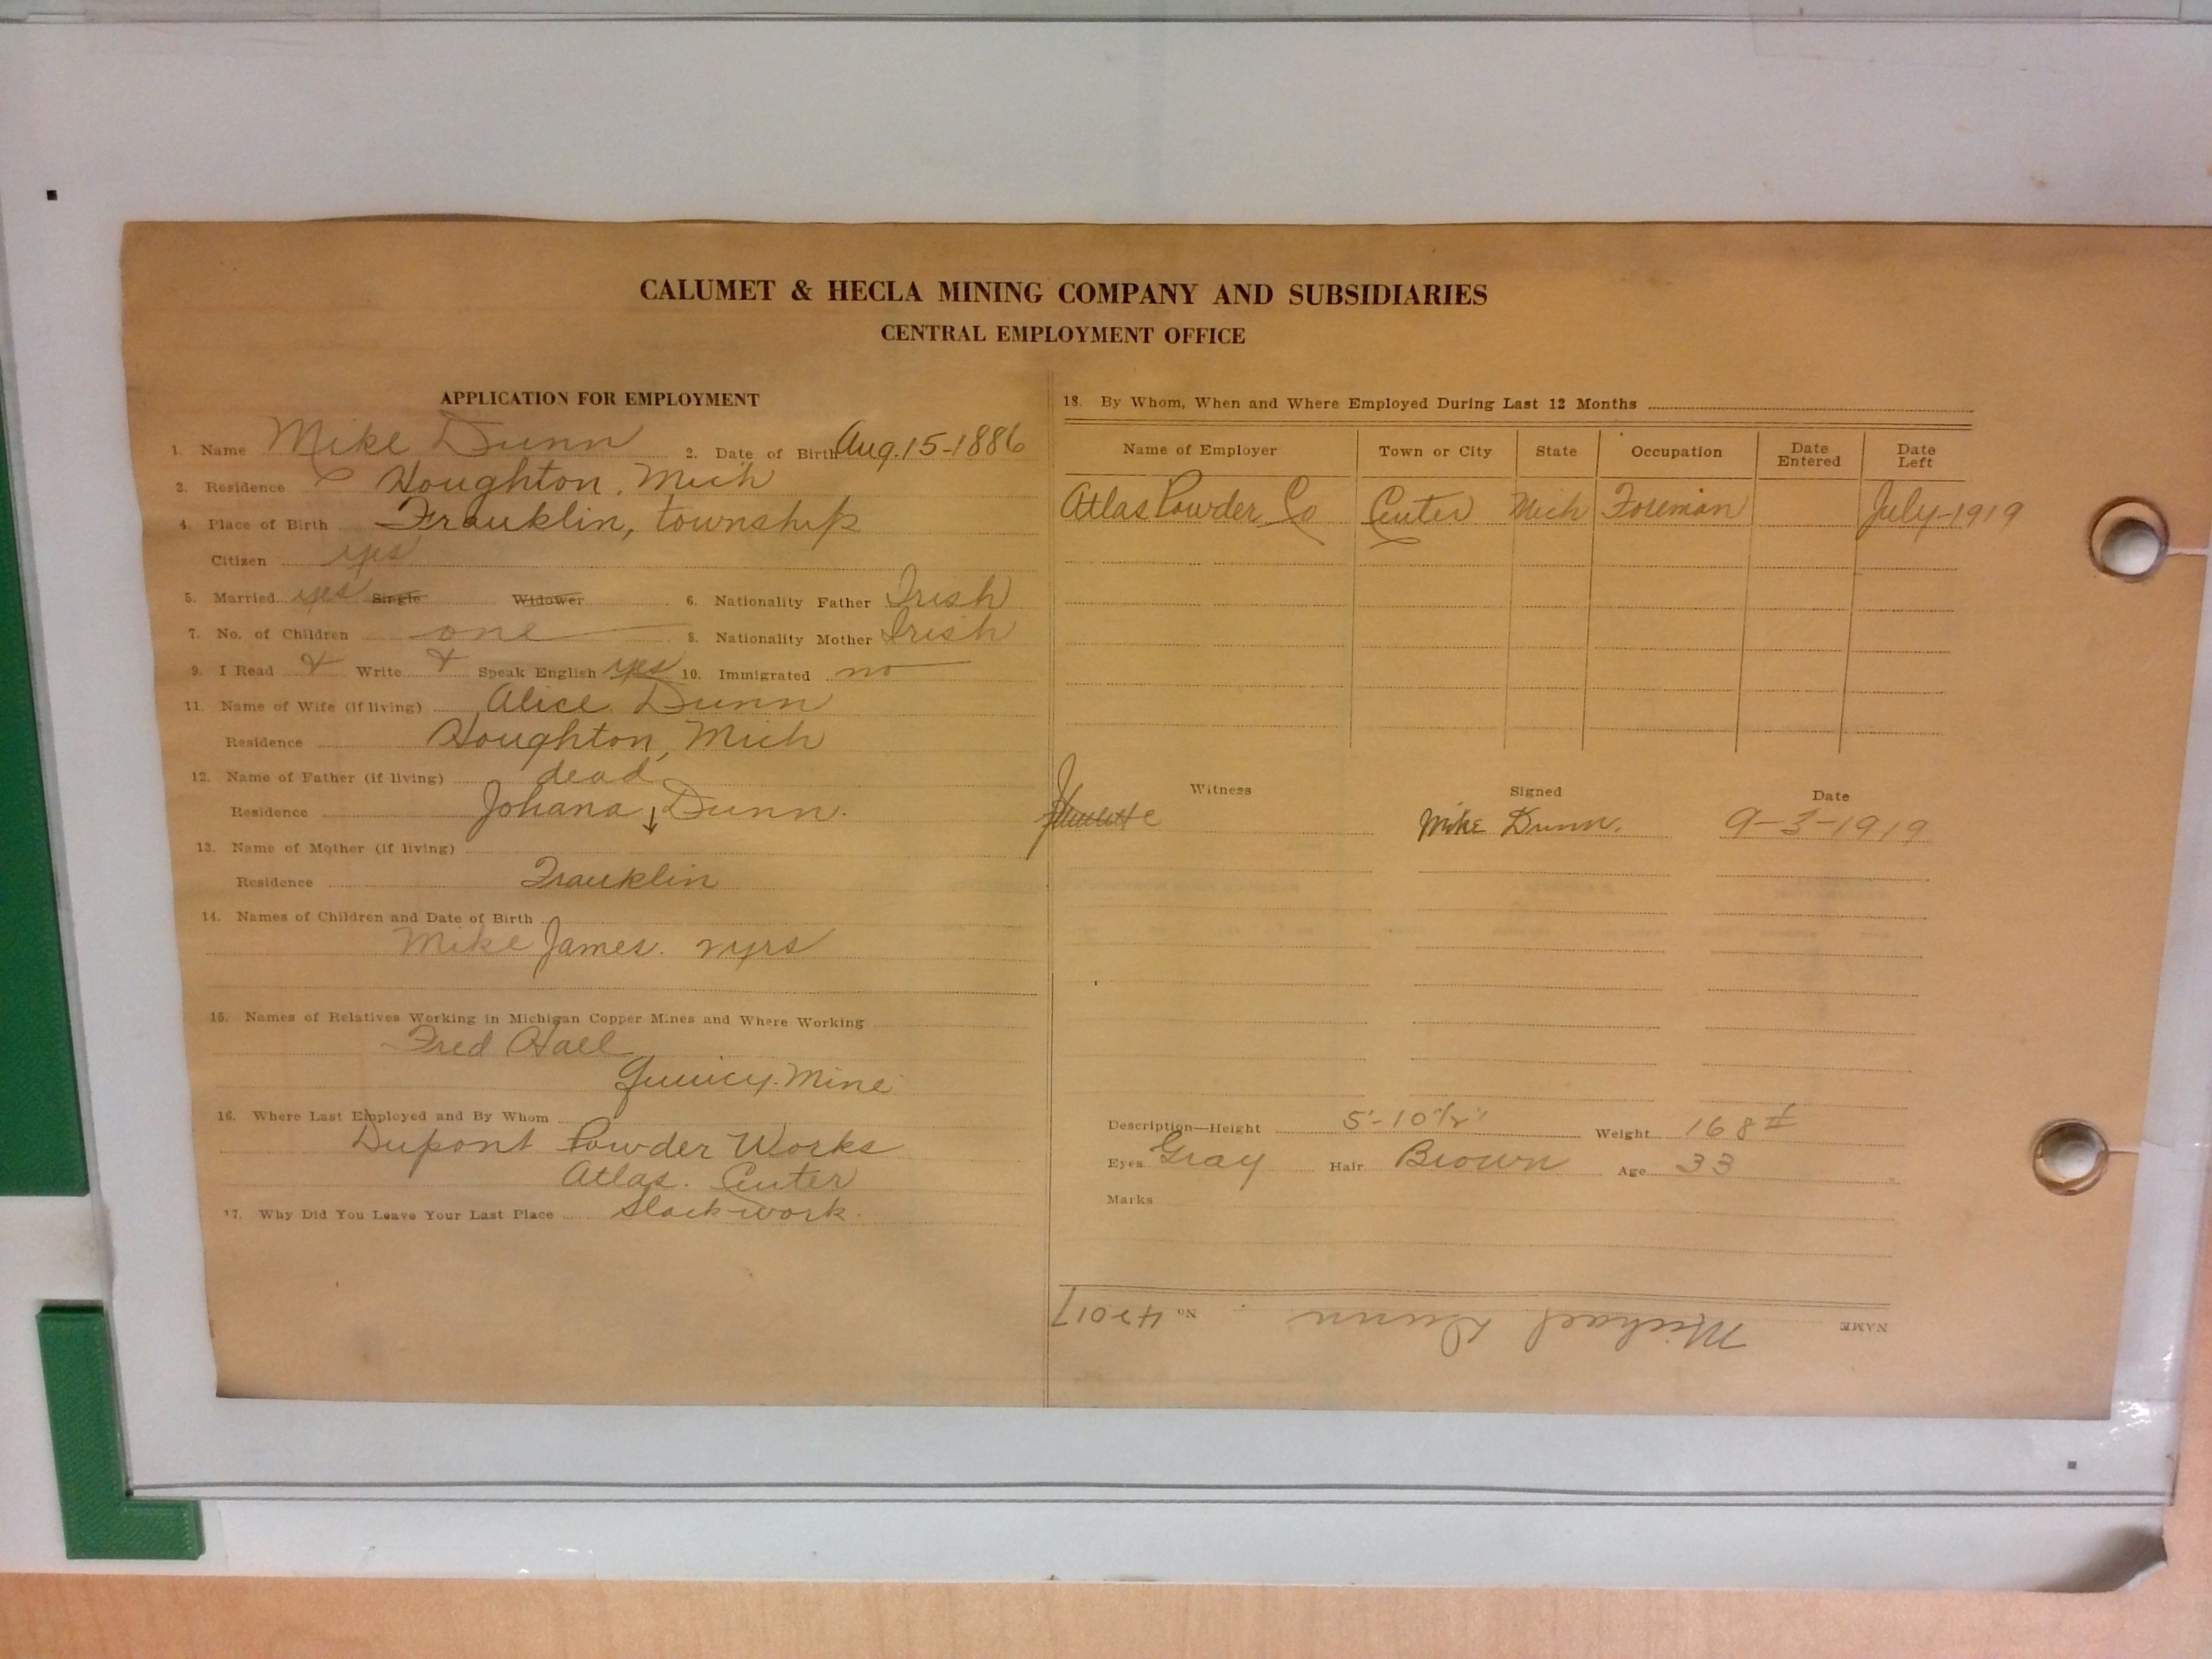 CALUMET & HECLA MINING COMPANY AND SUBSIDIARIES
CENTRAL EMPLOYMENT OFFICE
APPLICATION FOR EMPLOYMENT
1. Name Mike Dunn 2. Date of Birth Aug. 15-1886
3. Residence Houghton, Mich
4. Place of Birth Franklin, township
Citizen yes
5. Married yes Single Widower 6. Nationality Father Irish
7. No. of Children one 8. Nationality Mother Irish
9. I Read & Write & Speak English yes 10. Immigrated no
11. Name of Wife (if living) Alice Dunn
Residence Houghton, Mich
12. Name of Father (if living) dead
Residence Johana Dunn.
13. Name of Mother (if living)
Residence Franklin
14. Names of Children and Date of Birth
Mike James. 2 yrs
15. Names of Relatives Working in Michigan Copper Mines and Where Working
Fred Hall
Quincy Mine
16. Where Last Employed and By Whom
Dupont Powder Works
Atlas. Center
17. Why Did You Leave Your Last Place Slack work.
18. By Whom, When and Where Employed During Last 12 Months
Name of Employer Town or City State Occupation Date Entered Date Left
Atlas Powder Co Center Mich Foreman July-1919
Witness Signed Date
Mike Dunn. 9-3-1919
Description—Height 5'-10 1/2" Weight 168#
Eyes Gray Hair Brown Age 33
Marks
NAME Michael Dunn No. 42017